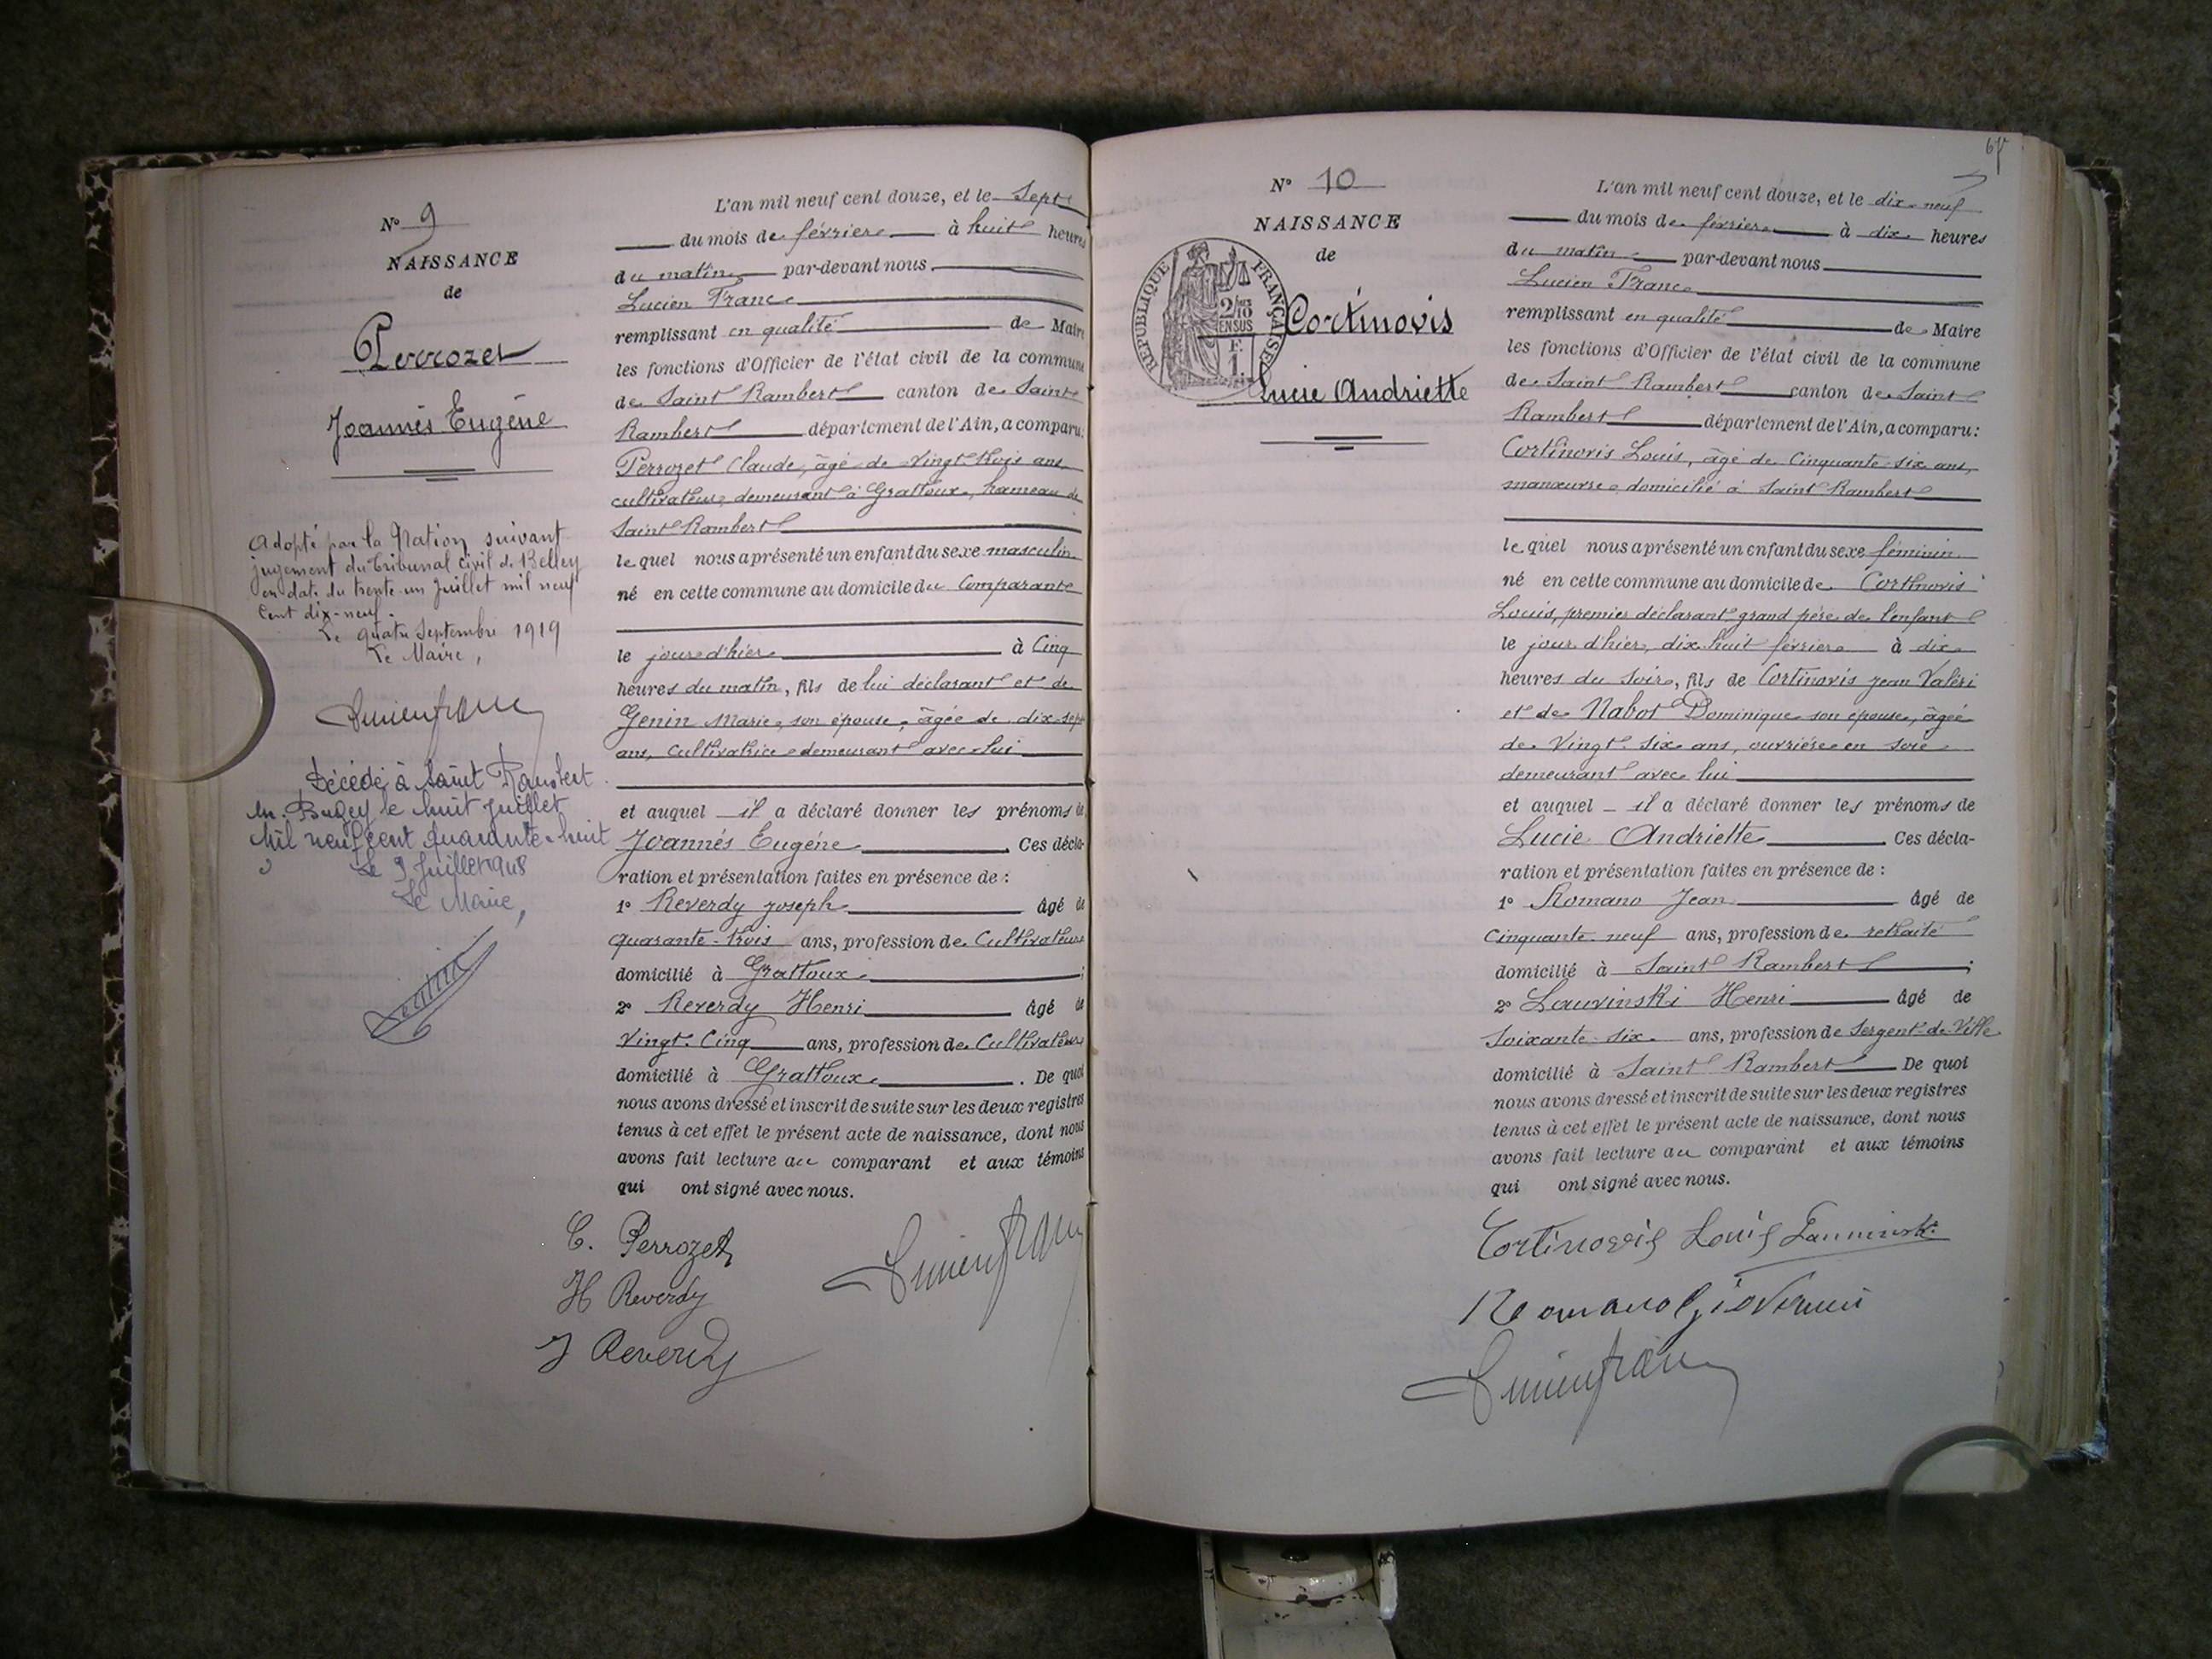 N° 9
NAISSANCE
de
Perrozet
Joannès Eugène
Adopté par la Nation suivant
jugement du tribunal civil de Belley
en date du trente-un Juillet mil neuf
cent dix-neuf.
Le quatre Septembre 1919
Le Maire,
Lucien franc
Décédé à Saint Rambert
en Bugey le huit juillet
mil neuf cent quarante-huit
Le 9 Juillet 1948
Le Maire,
L'an mil neuf cent douze, et le Sept
du mois de février à huit heures
du matin par-devant nous
Lucien Franc
remplissant en qualité de Maire
les fonctions d'Officier de l'état civil de la commune
de Saint Rambert canton de Saint
Rambert département de l'Ain, a comparu:
Perrozet Claude, âgé de vingt-trois ans
cultivateur, demeurant à Grattoux, hameau de
Saint Rambert
lequel nous a présenté un enfant du sexe masculin
né en cette commune au domicile du Comparant
le jour d'hier à Cinq
heures du matin, fils de lui déclarant et de
Genin Marie, son épouse, âgée de dix-sept
ans, Cultivatrice demeurant avec lui
et auquel il a déclaré donner les prénoms de
Joannès Eugène. Ces décla-
ration et présentation faites en présence de :
1° Reverdy Joseph âgé de
quarante-trois ans, profession de Cultivateur
domicilié à Grattoux ;
2° Reverdy Henri âgé de
Vingt-Cinq ans, profession de Cultivateur
domicilié à Grattoux. De quoi
nous avons dressé et inscrit de suite sur les deux registres
tenus à cet effet le présent acte de naissance, dont nous
avons fait lecture au comparant et aux témoins
qui ont signé avec nous.
C. Perrozet
H Reverdy
J Reverdy
Lucien franc
N° 10
NAISSANCE
de
RÉPUBLIQUE FRANÇAISE
2/10
EN SUS
F.
1.
Cortinovis
Lucie Andriette
L'an mil neuf cent douze, et le dix-neuf
du mois de février à dix heures
du matin par-devant nous
Lucien Franc
remplissant en qualité de Maire
les fonctions d'Officier de l'état civil de la commune
de Saint Rambert canton de Saint
Rambert département de l'Ain, a comparu:
Cortinovis Louis, âgé de Cinquante-six ans,
manœuvre, domicilié à Saint Rambert
lequel nous a présenté un enfant du sexe féminin
né en cette commune au domicile de Cortinovis
Louis, premier déclarant grand père de l'enfant
le jour d'hier, dix huit février à dix
heures du Soir, fils de Cortinovis Jean Valéri
et de Nabot Dominique son épouse, âgée
de Vingt-six ans, ouvrière en soie
demeurant avec lui
et auquel il a déclaré donner les prénoms de
Lucie Andriette. Ces décla-
ration et présentation faites en présence de :
1° Romano Jean âgé de
Cinquante neuf ans, profession de retraité
domicilié à Saint Rambert ;
2° Lauvinski Henri âgé de
Soixante-six ans, profession de Sergent-de-Ville
domicilié à Saint Rambert De quoi
nous avons dressé et inscrit de suite sur les deux registres
tenus à cet effet le présent acte de naissance, dont nous
avons fait lecture au comparant et aux témoins
qui ont signé avec nous.
Cortinovis Louis Lauvinski
Romano Giovanni
Lucien franc